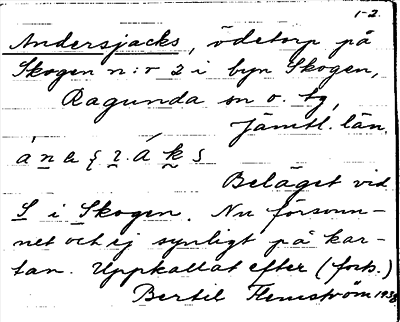 1-2.
Andersjacks, ödetorp på
Skogen n:r 2 i byn Skogen,
Ragunda sn o. tg,
Jämtl. län.
Beläget vid
S i Skogen. Nu försvun-
net och ej synligt på kar-
tan. Uppkallat efter (forts.)
Bertil Flemström 1938